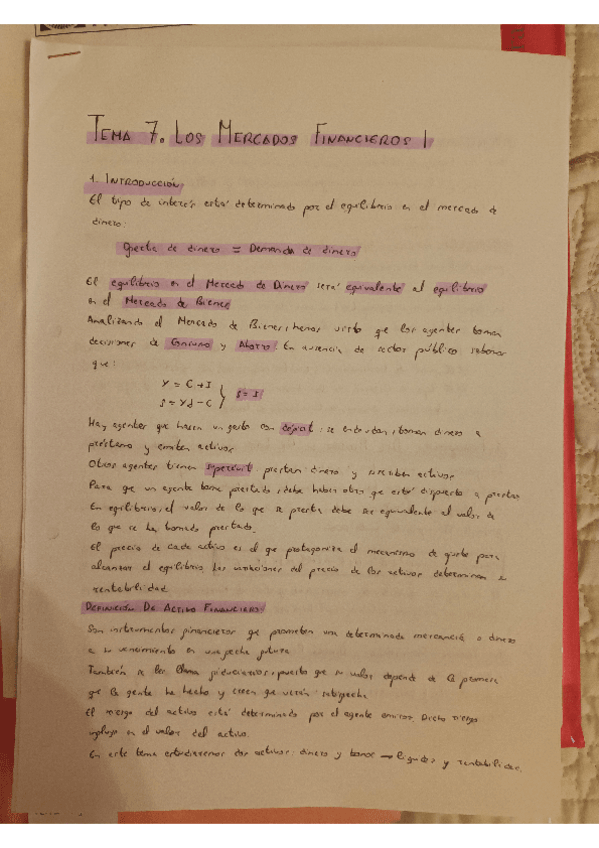 TEMA 7. LOS MERCADOS FINANCIEROS I
1. INTRODUCCIÓN
El tipo de interés está determinado por el equilibrio en el mercado de
dinero:
Oferta de dinero = Demanda de dinero
El equilibrio en el Mercado de Dinero será equivalente al equilibrio
en el Mercado de Bienes
Analizando el Mercado de Bienes, hemos visto que los agentes toman
decisiones de Consumo y Ahorro. En ausencia de sector público sabemos
que:
Y = C + I
S = Yd - C } S = I
Hay agentes que hacen un gasto con déficit: se endeudan, toman dinero a
préstamo y emiten activos
Otros agentes tienen superávit: prestan dinero y suscriben activos
Para que un agente tome prestado, debe haber otro que esté dispuesto a prestar
En equilibrio, el valor de lo que se presta debe ser equivalente al valor de
lo que se ha tomado prestado.
El precio de cada activo es el que protagoniza el mecanismo de ajuste para
alcanzar el equilibrio. Las variaciones del precio de los activos determinan su
rentabilidad
DEFINICIÓN DE ACTIVO FINANCIERO:
Son instrumentos financieros que prometen una determinada mercancía o dinero
a su vencimiento en una fecha futura
También se les llama fiduciarios, puesto que su valor depende de la promesa
que la gente ha hecho y creen que verán satisfecha
El riesgo del activo está determinado por el agente emisor. Dicho riesgo
influye en el valor del activo.
En este tema estudiaremos dos activos: dinero y bonos → liquidez y rentabilidad.